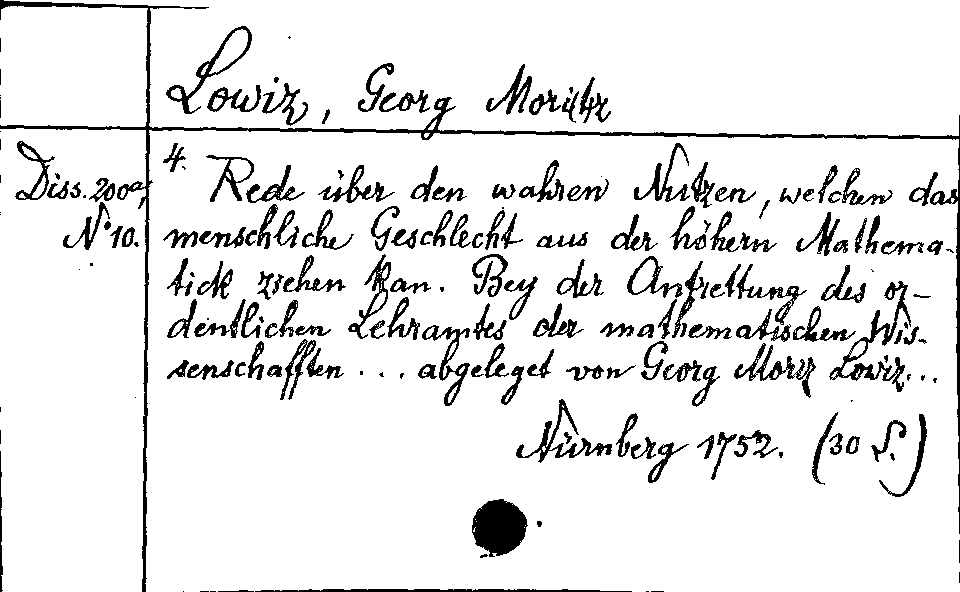 Lowiz, Georg Moritz
Diss. 200a,
N° 10.
4. Rede über den wahren Nutzen, welchen das
menschliche Geschlecht aus der höhern Mathema-
tick ziehen kan. Bey der Antrettung des or-
dentlichen Lehramtes der mathematischen Wis-
senschafften ... abgeleget von Georg Moriz Lowiz...
Nürnberg 1752. (30 S.)